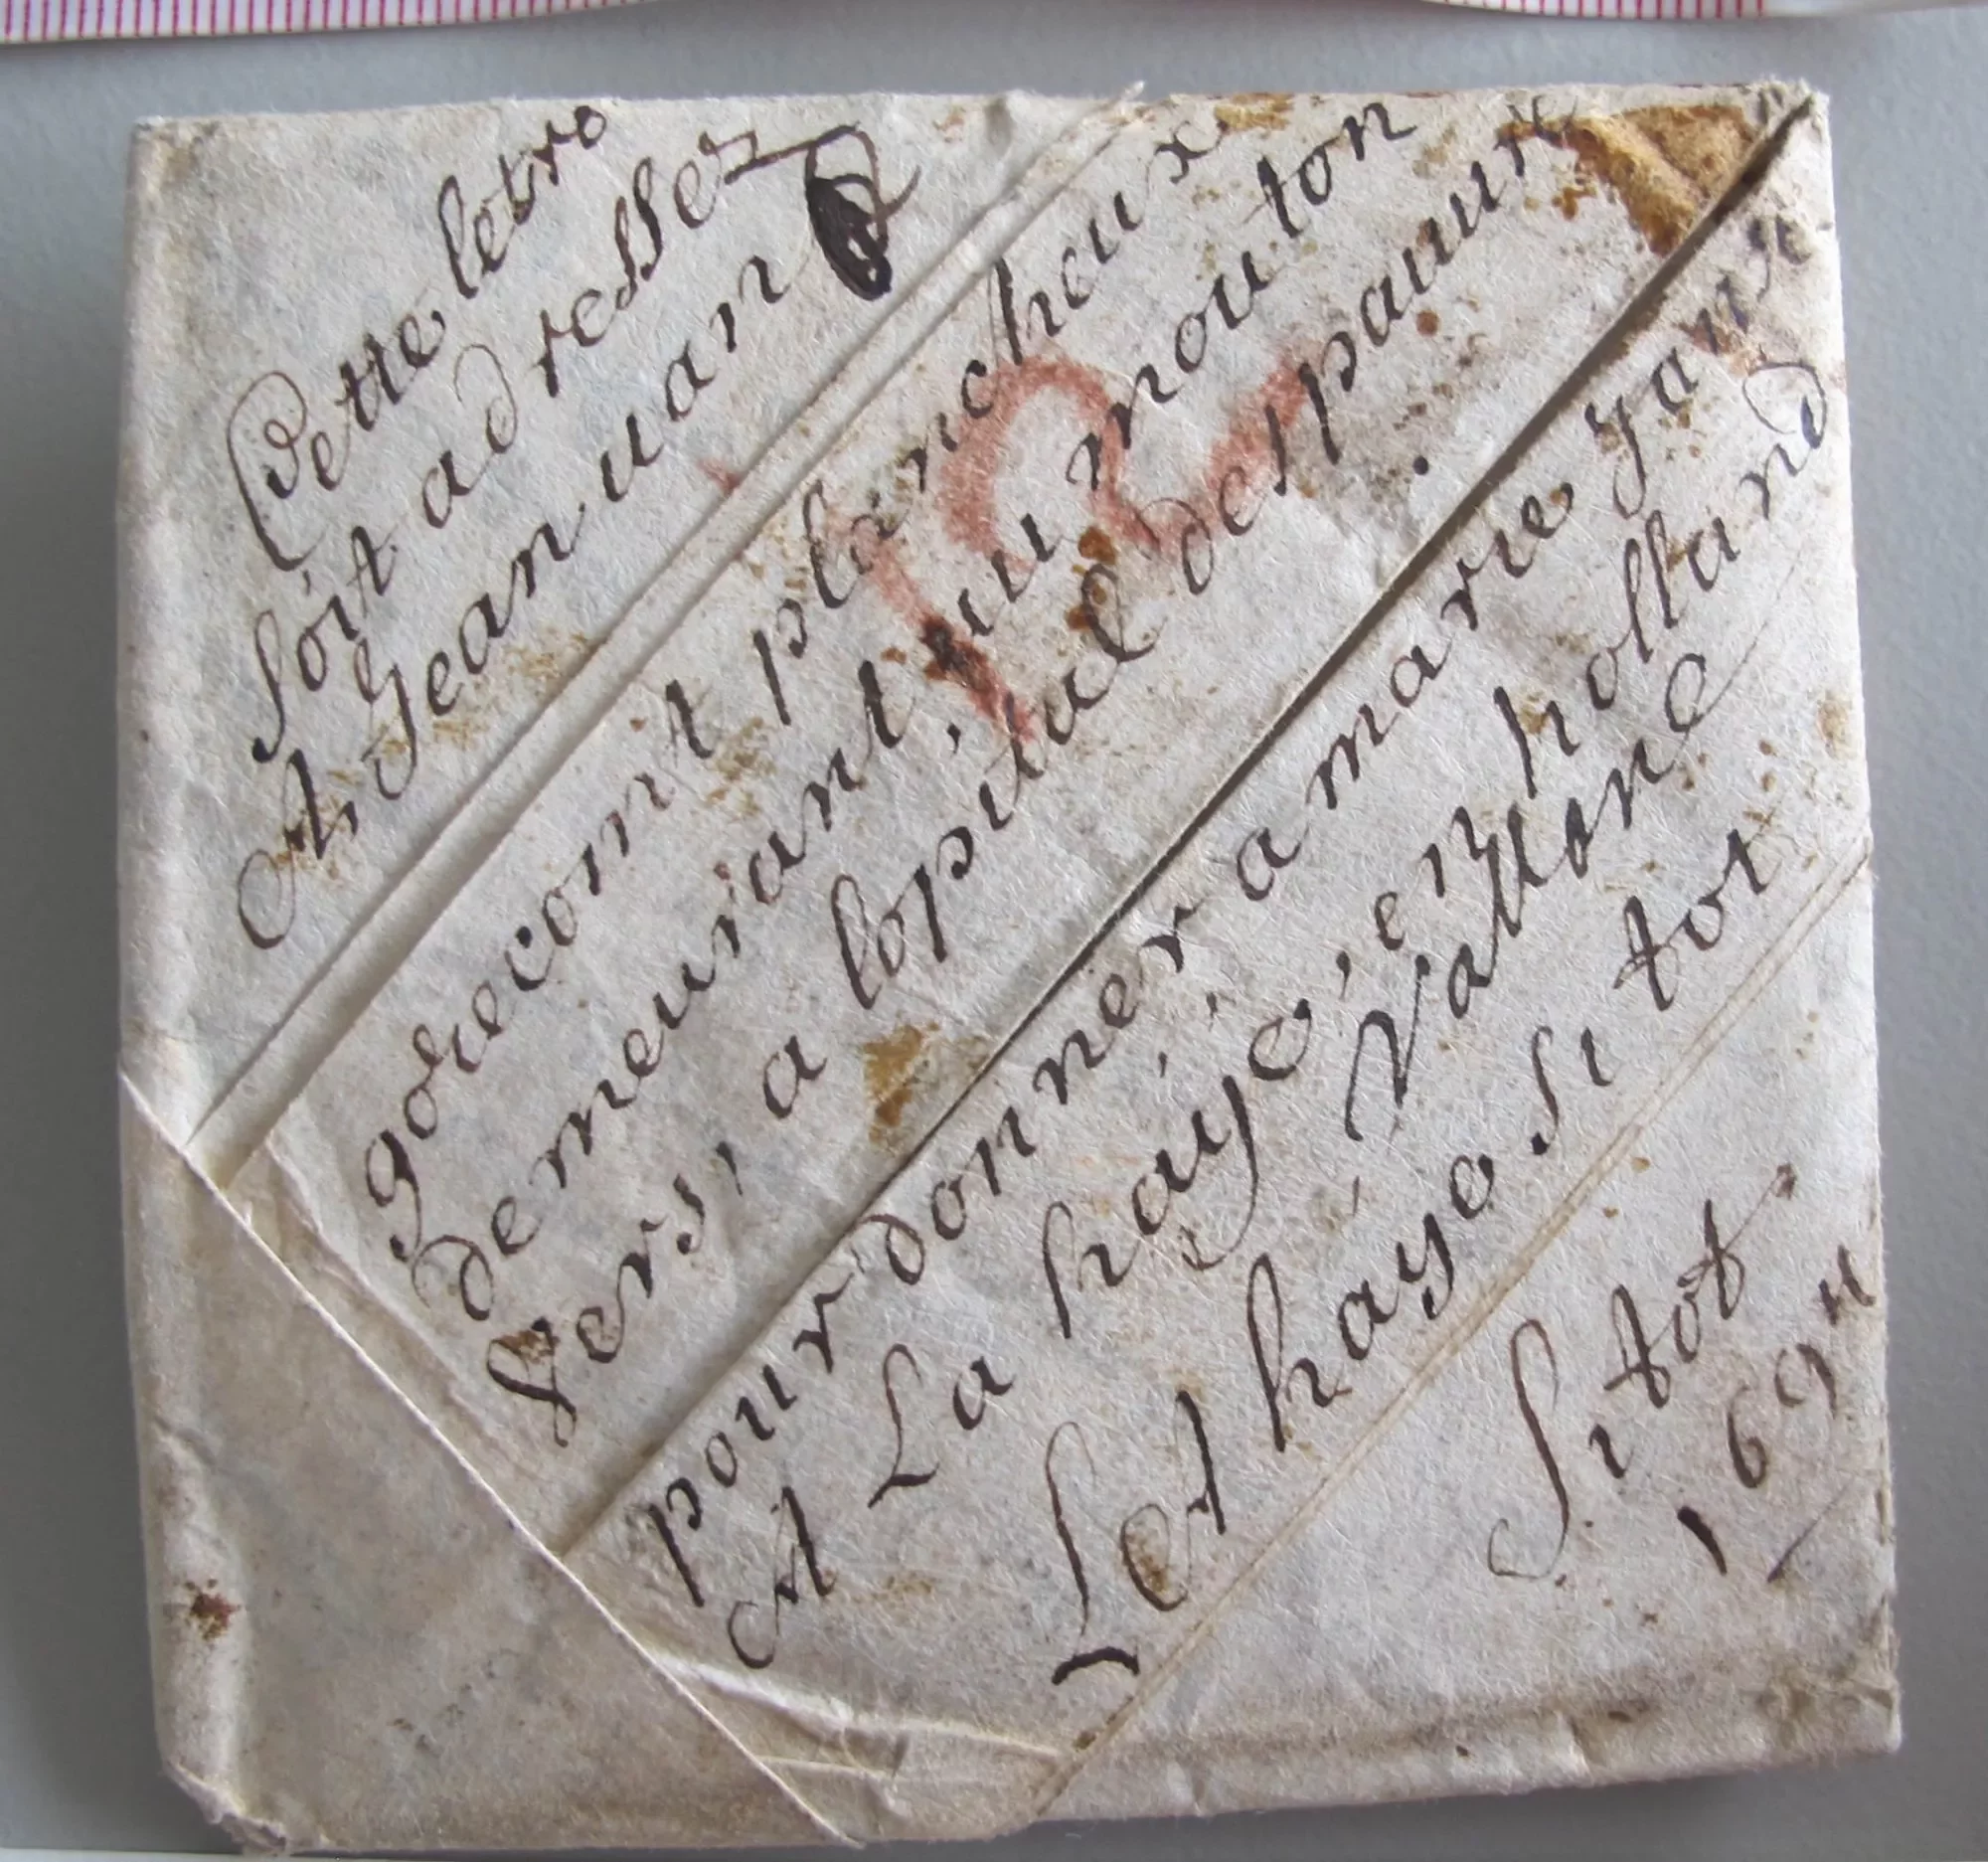 Cette letre
soit adresser
A Jean uan
godrecomt plancheux
demeurant, au mouton
Vers, a lopital des pauure
pour donner a marie Jans
A La haye, en holland
Vallone
Let haye si tot
Si tot.
169